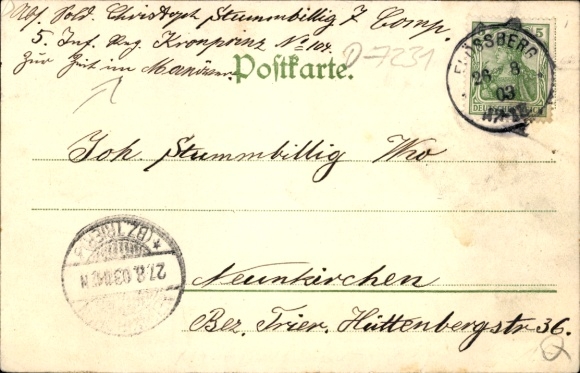 Abs. Sold. Christoph Stummbillig 7 Comp.
5. Inf. Reg. Kronprinz No 104.
Zur Zeit im Manöver.
D-7231
Postkarte.
5
FLÖSSBERG
26 8
03
DEUTSCHES REICH
Joh Stummbillig Wwo
(BZ. TRIER)
27.8.03
Neunkirchen
Bez. Trier. Hüttenbergstr 36.